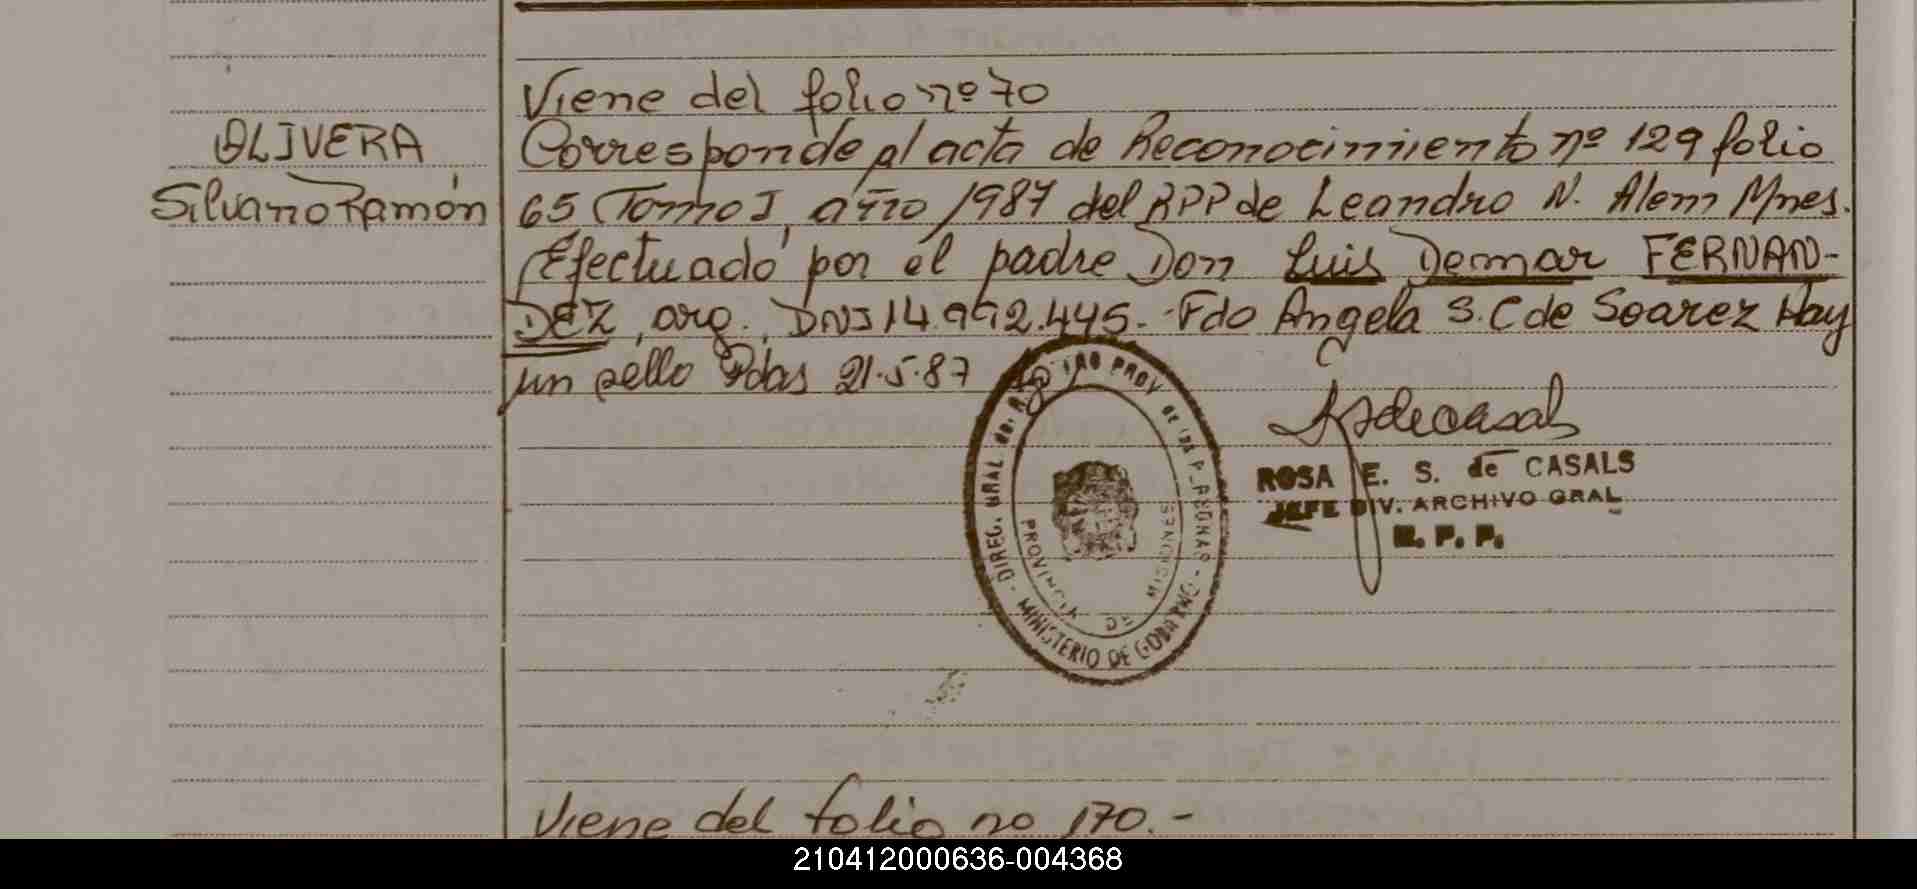 Viene del folio nº 70
OLIVERA
Silvano Ramón
Corresponde al acta de Reconocimiento nº 129 folio
65 Tomo I, año 1987 del RPP de Leandro N. Alem Mnes.
Efectuado por el padre Don Luis Demar FERNAN-
DEZ, arg. DNI 14.992.445.- Fdo Angela S. C de Soarez Hay
un sello Pdas 21.5.87
DIREC. GRAL. DE PROV DE LAS PERSONAS - MINISTERIO DE GOBIERNO -
PROVINCIA DE MISIONES
ROSA E. S. de CASALS
JEFE DIV. ARCHIVO GRAL
R. P. P.
Viene del folio no 170.-
210412000636-004368